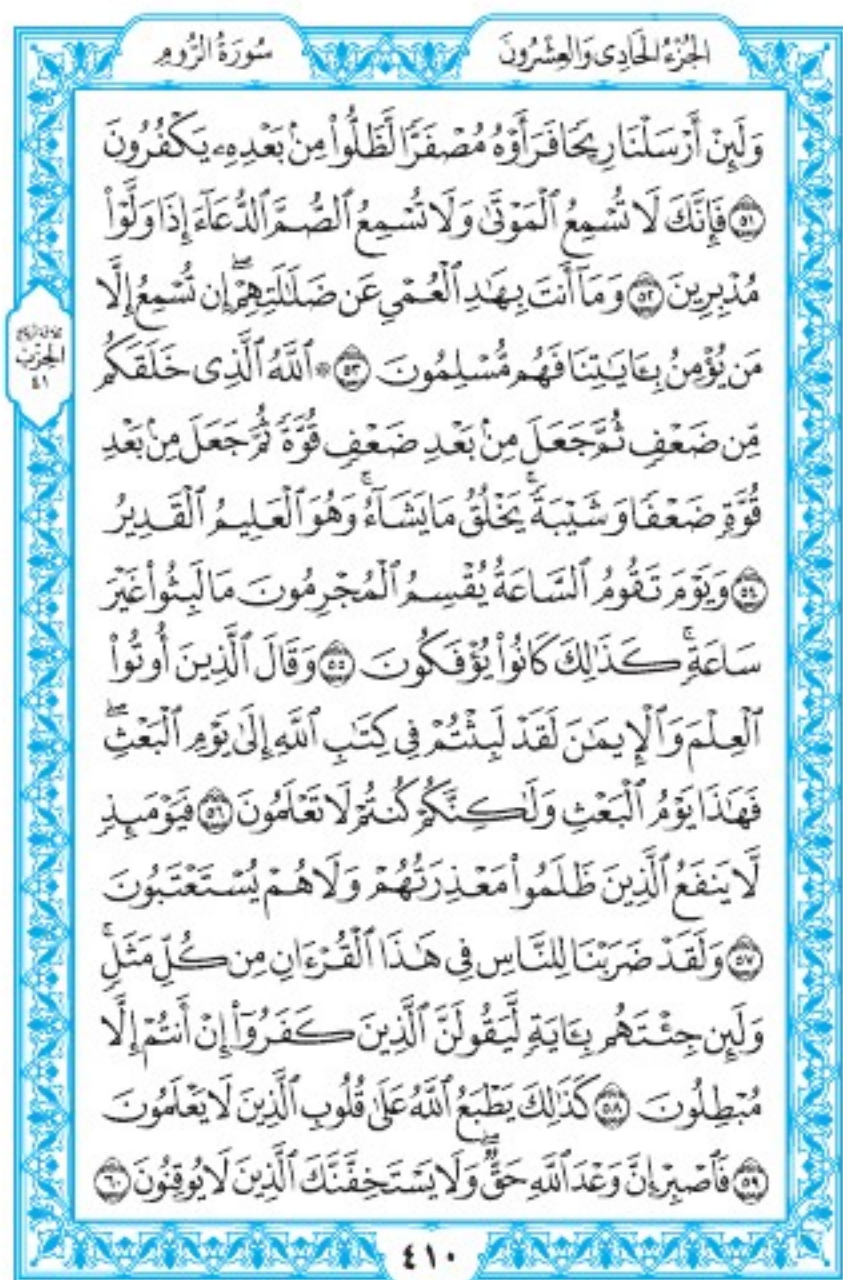 الجُزْءُ الحَادِى وَالعِشْرُونَ
سُورَةُ الرُّومِ
وَلَئِنْ أَرْسَلْنَا رِيحًا فَرَأَوْهُ مُصْفَرًّا لَّظَلُّوا۟ مِنۢ بَعْدِهِۦ يَكْفُرُونَ
۝٥١ فَإِنَّكَ لَا تُسْمِعُ ٱلْمَوْتَىٰ وَلَا تُسْمِعُ ٱلصُّمَّ ٱلدُّعَآءَ إِذَا وَلَّوْا۟
مُدْبِرِينَ ۝٥٢ وَمَآ أَنتَ بِهَٰدِ ٱلْعُمْىِ عَن ضَلَٰلَتِهِمْ ۖ إِن تُسْمِعُ إِلَّا
مَن يُؤْمِنُ بِـَٔايَٰتِنَا فَهُم مُّسْلِمُونَ ۝٥٣ ۞ ٱللَّهُ ٱلَّذِى خَلَقَكُم
مِّن ضَعْفٍ ثُمَّ جَعَلَ مِنۢ بَعْدِ ضَعْفٍ قُوَّةً ثُمَّ جَعَلَ مِنۢ بَعْدِ
قُوَّةٍ ضَعْفًا وَشَيْبَةً ۚ يَخْلُقُ مَا يَشَآءُ ۚ وَهُوَ ٱلْعَلِيمُ ٱلْقَدِيرُ
۝٥٤ وَيَوْمَ تَقُومُ ٱلسَّاعَةُ يُقْسِمُ ٱلْمُجْرِمُونَ مَا لَبِثُوا۟ غَيْرَ
سَاعَةٍ ۚ كَذَٰلِكَ كَانُوا۟ يُؤْفَكُونَ ۝٥٥ وَقَالَ ٱلَّذِينَ أُوتُوا۟
ٱلْعِلْمَ وَٱلْإِيمَٰنَ لَقَدْ لَبِثْتُمْ فِى كِتَٰبِ ٱللَّهِ إِلَىٰ يَوْمِ ٱلْبَعْثِ ۖ
فَهَٰذَا يَوْمُ ٱلْبَعْثِ وَلَٰكِنَّكُمْ كُنتُمْ لَا تَعْلَمُونَ ۝٥٦ فَيَوْمَئِذٍ
لَّا يَنفَعُ ٱلَّذِينَ ظَلَمُوا۟ مَعْذِرَتُهُمْ وَلَا هُمْ يُسْتَعْتَبُونَ
۝٥٧ وَلَقَدْ ضَرَبْنَا لِلنَّاسِ فِى هَٰذَا ٱلْقُرْءَانِ مِن كُلِّ مَثَلٍ ۚ
وَلَئِن جِئْتَهُم بِـَٔايَةٍ لَّيَقُولَنَّ ٱلَّذِينَ كَفَرُوٓا۟ إِنْ أَنتُمْ إِلَّا
مُبْطِلُونَ ۝٥٨ كَذَٰلِكَ يَطْبَعُ ٱللَّهُ عَلَىٰ قُلُوبِ ٱلَّذِينَ لَا يَعْلَمُونَ
۝٥٩ فَٱصْبِرْ إِنَّ وَعْدَ ٱللَّهِ حَقٌّ ۖ وَلَا يَسْتَخِفَّنَّكَ ٱلَّذِينَ لَا يُوقِنُونَ ۝٦٠
الحِزْب
٤١
٤١٠